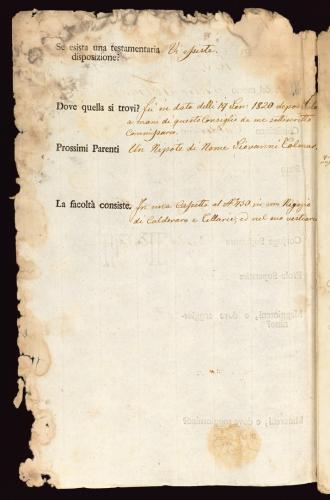 Se esista una testamentaria Vi esiste.
disposizione?
Dove quella si trovi? fù in data delli 19 Gen: 1820 depositato
a mani di questo Consiglio da me sottoscritto
Commissario.
Prossimi Parenti Un Nepote di Nome Giovanni
La facoltà consiste. In una Casetta al N° 450 in un Negozio
di Calderaro e Tellarie, ed nel suo vestiario